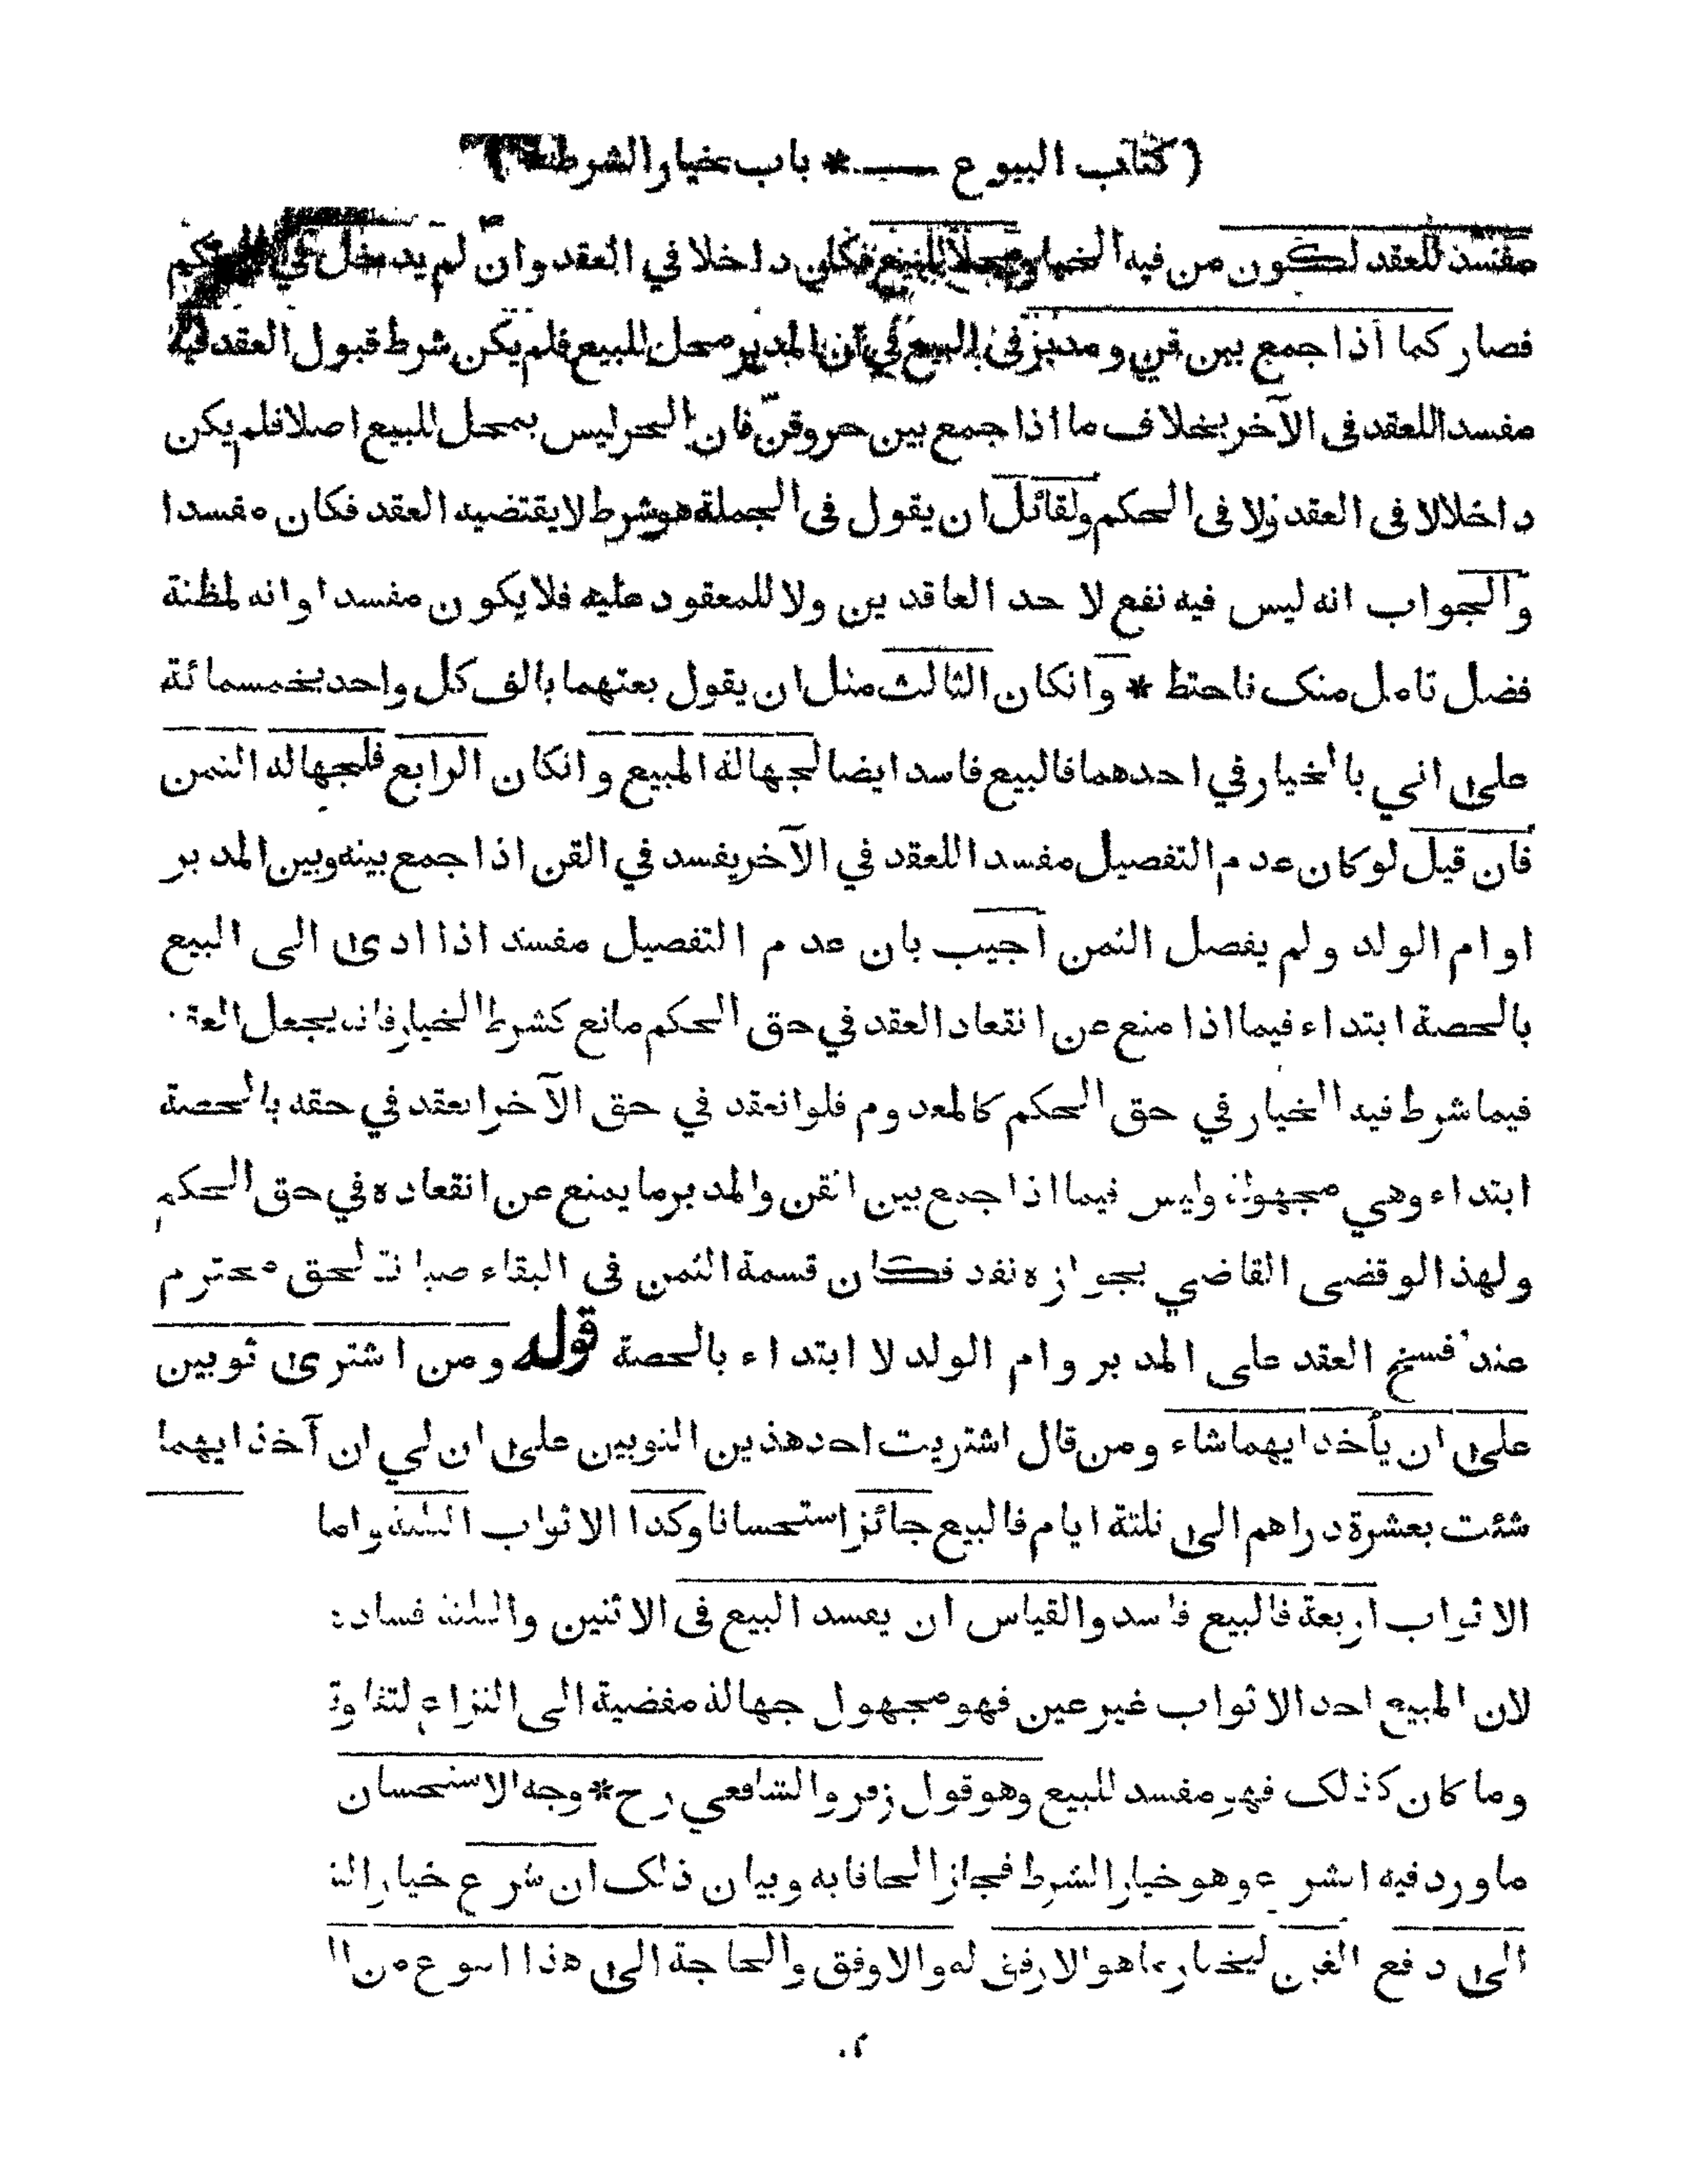 ( كتاب البيوع — * باب خيار الشرط )
مفسد للعقد لكون من فيه الخيار محلا للبيع فكان داخلا في العقد وان لم يدخل في الحكم
فصار كما اذا جمع بين قن ومدبر فى البيع في ان المدبر محل للبيع فلم يكن شرط قبول العقد فيه
مفسدا للعقد فى الآخر بخلاف ما اذا جمع بين حر وقن فان الحر ليس بمحل للبيع اصلا فلم يكن
داخلا لا فى العقد ولا فى الحكم ولقائل ان يقول فى الجملة هو شرط لا يقتضيه العقد فكان مفسدا
والجواب انه ليس فيه نفع لا حد العاقدين ولا للمعقود عليه فلا يكون مفسدا وانه لمظنة
فضل تامل منك فاحتط * وانكان الثالث مثل ان يقول بعتهما بالف كل واحد بخمسمائة
على اني بالخيار في احدهما فالبيع فاسد ايضا لجهالة المبيع وانكان الرابع فلجهالة الثمن
فان قيل لو كان عدم التفصيل مفسدا للعقد في الآخر يفسد في القن اذا جمع بينه وبين المدبر
او ام الولد ولم يفصل الثمن اجيب بان عدم التفصيل مفسد اذا ادى الى البيع
بالحصة ابتداء فيما اذا منع عن انقعاد العقد في حق الحكم مانع كشرط الخيار فانه يجعل
فيما شرط فيه الخيار في حق الحكم كالمعدوم فلو انعقد في حق الآخر انعقد في حقه بالحصة
ابتداء وهي مجهولة وليس فيما اذا جمع بين القن والمدبر ما يمنع عن انقعاده في حق الحكم
ولهذا لو قضى القاضي بجوازه نفذ فكان قسمة الثمن فى البقاء صيانة لحق محترم
عند فسخ العقد على المدبر وام الولد لا ابتداء بالحصة قوله ومن اشترى ثوبين
على ان يأخذ ايهما شاء ومن قال اشتريت احد هذين الثوبين على ان لي ان آخذ ايهما
شئت بعشرة دراهم الى ثلثة ايام فالبيع جائز استحسانا وكذا الاثواب الثلثة واما
الاثواب اربعة فالبيع فاسد والقياس ان يفسد البيع فى الاثنين والثلثة
لان المبيع احد الاثواب غير عين فهو مجهول جهالة مفضية الى النزاع لتفاوت
وما كان كذلك فهو مفسد للبيع وهو قول زفر والشافعي رح * وجه الاستحسان
ما ورد فيه الشرع وهو خيار الشرط فجاز الحاقا به وبيان ذلك ان شرع خيار
الى دفع الغبن ليختار ما هو الارفق له والاوفق والحاجة الى هذا النوع من